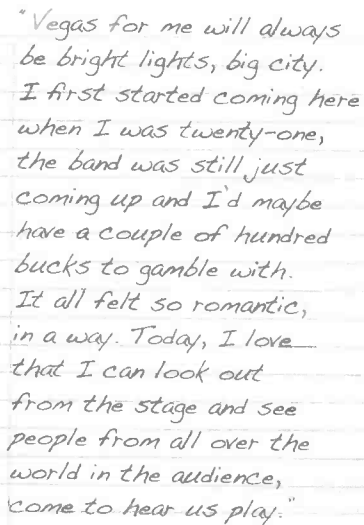 "Vegas for me will always
be bright lights, big city.
I first started coming here
when I was twenty-one,
the band was still just
coming up and I'd maybe
have a couple of hundred
bucks to gamble with.
It all felt so romantic,
in a way. Today, I love
that I can look out
from the stage and see
people from all over the
world in the audience,
come to hear us play."